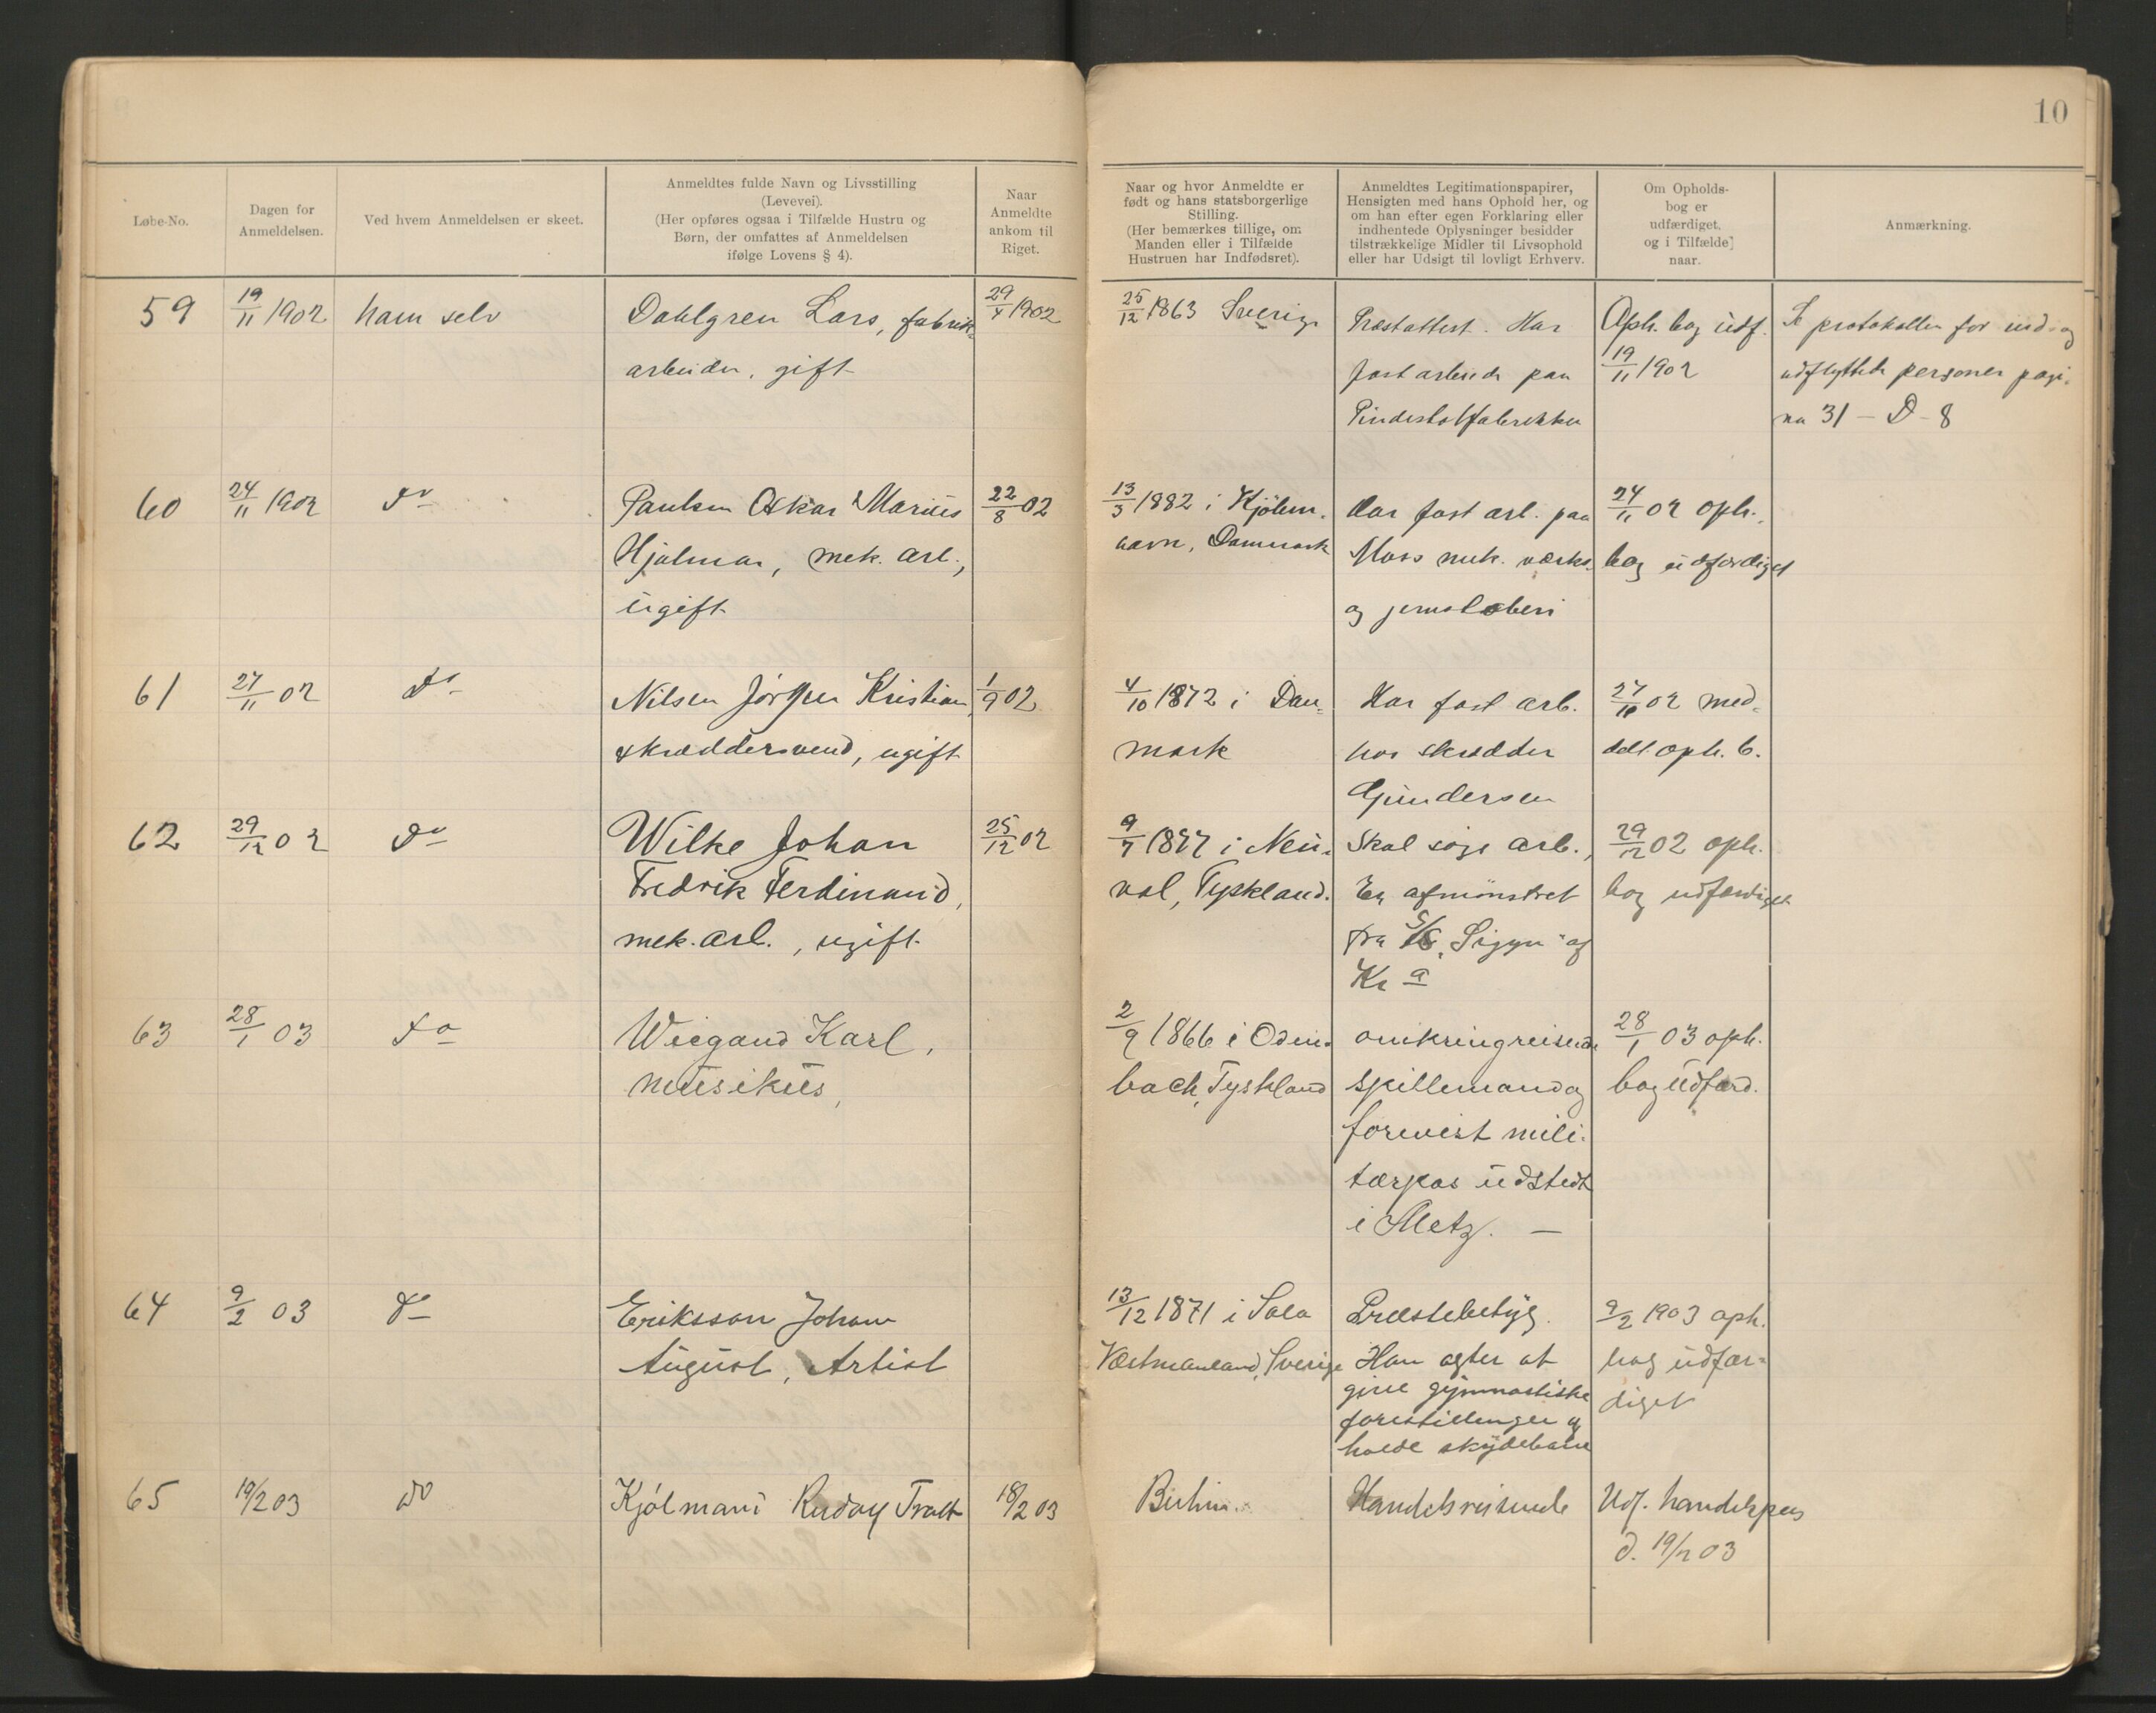 10
Løbe-No.
Dagen for
Anmeldelsen.
Ved hvem Anmeldelsen er skeet.
Anmeldtes fulde Navn og Livsstilling
(Levevei).
(Her opføres ogsaa i Tilfælde Hustru og
Børn, der omfattes af Anmeldelsen
ifølge Lovens § 4).
Naar
Anmeldte
ankom til
Riget.
Naar og hvor Anmeldte er
født og hans statsborgerlige
Stilling.
(Her bemærkes tillige, om
Manden eller i Tilfælde
Hustruen har Indfødsret).
Anmeldtes Legitimationspapirer,
Hensigten med hans Ophold her, og
om han efter egen Forklaring eller
indhentede Oplysninger besidder
tilstrækkelige Midler til Livsophold
eller har Udsigt til lovligt Erhverv.
Om Opholds-
bog er
udfærdiget,
og i Tilfælde
naar.
Anmærkning.
59
19/11 1902
ham selv
Dahlgren Lars, fabrik-
arbeider, gift
29/4 1902
25/12 1863 Sverige
Præstattest. Har
fast arbeide paa
Pindestolfabrikken
Oph. bog udf.
19/11 1902
Se protokollen for ind- og
udflyttede personer pagi-
na 31 - D - 8
60
24/11 1902
do
Paulsen Oskar Marius
Hjalmar, mek. arb.,
ugift
22/8 02
13/3 1882 i Kjöben-
havn, Danmark
Har fast arb. paa
Moss mek. værks.
og jernstøberi
24/11 02 oph.
bog udfærdiget
61
27/11 02
do
Nilsen Jörgen Kristian,
skræddersvend, ugift
1/9 02
4/10 1872 i Dan-
mark
Har fast arb.
hos skrædder
Gundersen
27/11 02 med-
delt oph. b.
62
29/12 02
do
Wilke Johan
Fredrik Ferdinand,
mek. arb., ugift
25/12 02
9/7 1877 i Neu-
, Tyskland.
Skal söge arb.,
Er afmönstret
fra S/S "Sigyn" af
Kra
29/12 02 oph.
bog udfærdiget
63
28/1 03
do
Wiegand Karl,
musikus,
2/9 1866 i Oden-
bach, Tyskland
omkringreisende
spillemand og
forevist mili-
tærpas udstedt
i Metz. —
28/1 03 oph.
bog udfærd.
64
9/2 03
do
Eriksson Johan
August, Artist
13/12 1871 i Sala
Væstmanland, Sverige
Præstebetyg.
Han agter at
give gymnastiske
forestillinger og
holde skydebane
9/2 1903 oph.
bog udfær-
diget
65
19/2 03
do
Kjölmann Rudolf
18/2 03
Berlin
Handelsreisende
Udf. handelspas
d. 19/2 03